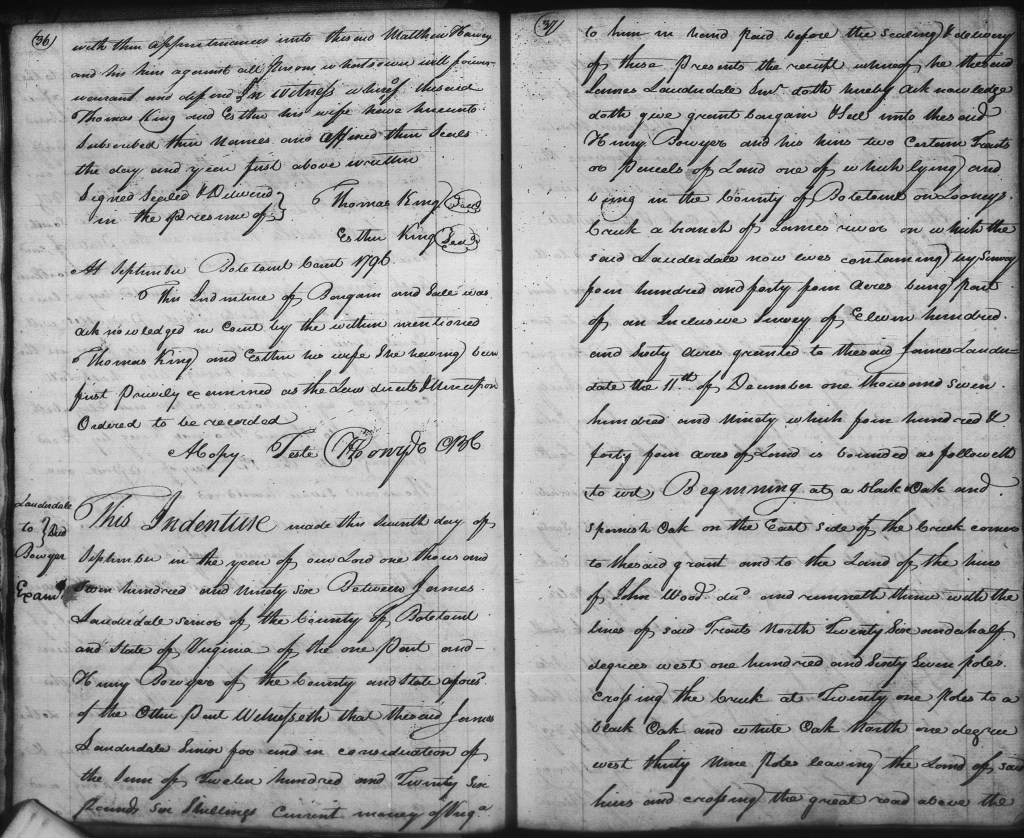 36
with thin appurtinances unto the said Matthew Harvey
and his hirs against all Persons whatsoever will forever
warrant and defend In Witness whereof the said
Thomas King and Esther his wife have hereunto
Subscribed thir Names and affixed thir Seals
the day and year first above written
Signed Sealed & Delivered
in the presence of
Thomas King Seal
Esther King Seal
At September Botetourt Court 1796
This Indenture of Bargain and Sale was
acknowledged in Court by the within mentioned
Thomas King and Esther his wife She having been
first Privily examined as the Law directs & thereupon
Ordered to be recorded
A Copy Teste
Lauderdale
to Deed
Bowyer
Examd
This Indenture made this seventh day of
September in the year of our Lord one thousand
Seven hundred and Ninety Six Between James
Lauderdale senior of the County of Botetourt
and State of Virginia of the one Part and
Henry Bowyer of the County and State aforesd
of the Other Part Witnesseth that the said James
Lauderdale Senior for and in consideration of
the Sum of Twelve hundred and Twenty Six
Pounds Six Shillings Current money of Virga
37
to him in hand paid before the sealing & delivery
of these Presents the receipt whereof he the said
James Lauderdale Senr doth hereby acknowledge
doth give grant bargain & Sell unto the said
Henry Bowyer and his hirs two certain Tracts
or Parcels of Land one of which lying and
being in the County of Botetourt on Looneys
Creek a branch of James river on which the
said Lauderdale now lives containing by Survey
four hundred and forty four Acres being part
of an Inclusive Survey of Eleven hundred
and Sixty Acres granted to the said James Lauder=
dale the 11th of December one thousand Seven
hundred and Ninety which four hundred &
forty four acres of Land is bounded as followeth
to wit Beginning at a black Oak and
Spanish Oak on the East side of the Creek corner
to the said grant and to the Land of the hirs
of John Wood decd and runneth thence with the
lines of said Tracts North Twenty Six and a half
degrees west one hundred and Sixty Seven poles
crossing the Creek at Twenty one Poles to a
black Oak and white Oak North one degree
west thirty Nine Poles leaving the Land of said
hirs and crossing the great road above the